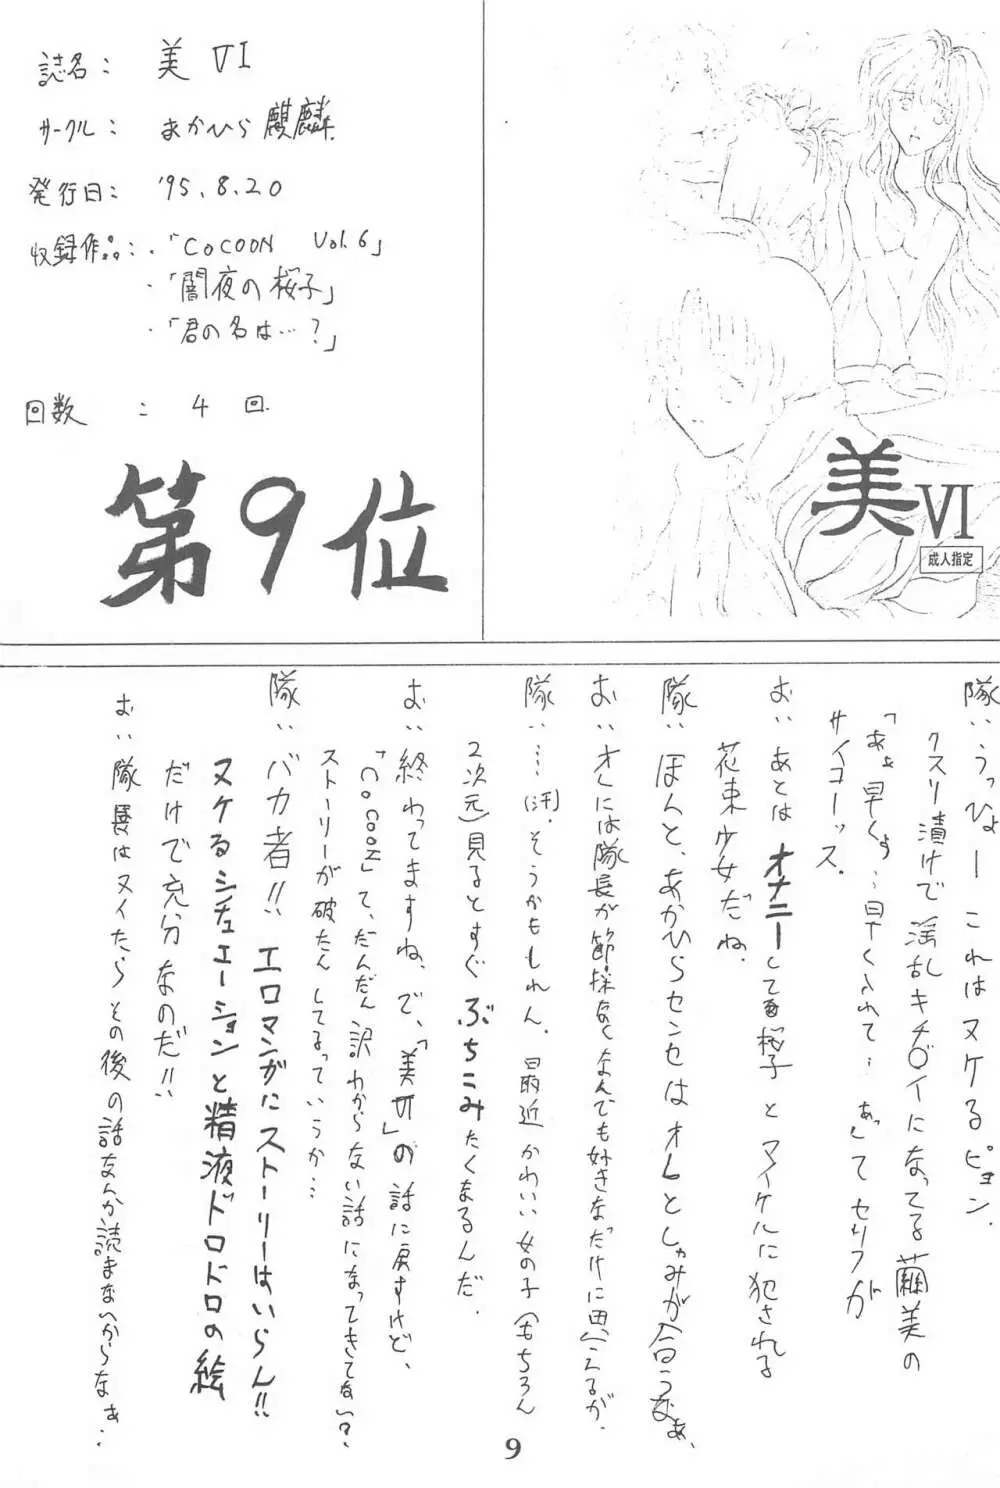 誌名： 美 VI
サークル： あかひら麒麟
発行日： '95.8.20
収録作品：・「COCOON Vol.6」
・「闇夜の桜子」
・「君の名は…？」
回数 ： 4回
第9位
美VI
成人指定
隊：うっひょー これはヌケるピョン．
クスリ漬けで淫乱キチ○イになってる繭美の
「あぁ早くぅ…早く入れて…あっ」てセリフが
サイコーッス．
お：あとはオナニーしてる桜子とマイケルに犯される
花束少女だね．
隊：ほんと、あかひらセンセはオレとしゅみが合うなぁ、
お：オレには隊長が節操なくなんでも好きなだけに思えるが．
隊：…．(汗)．そうかもしれん．最近かわいい女の子(もちろん
2次元)見るとすぐぶちこみたくなるんだ．
お：終わってますね、で、「美VI」の話に戻すけど、
「COCOON」て、だんだん訳わからない話になってきてない？
ストーリーが破たんしてるっていうか…
隊：バカ者!! エロマンガにストーリーはいらん!!
ヌケるシチュエーションと精液ドロドロの絵
だけで充分なのだ!!
お：隊長はヌイたらその後の話なんか読まないからなぁ．
9